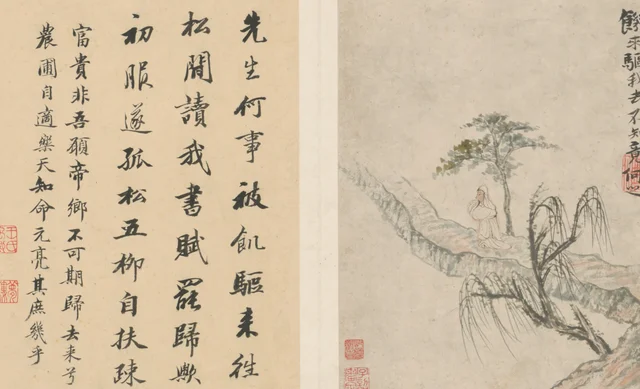 来驅我去不知竟何
先生何事被飢驅来徃
松間讀我書賦罷歸歟
初服遂孤松五柳自扶疎
富貴非吾願帝鄉不可期歸去来兮
農圃自適樂天知命元亮其庶幾乎